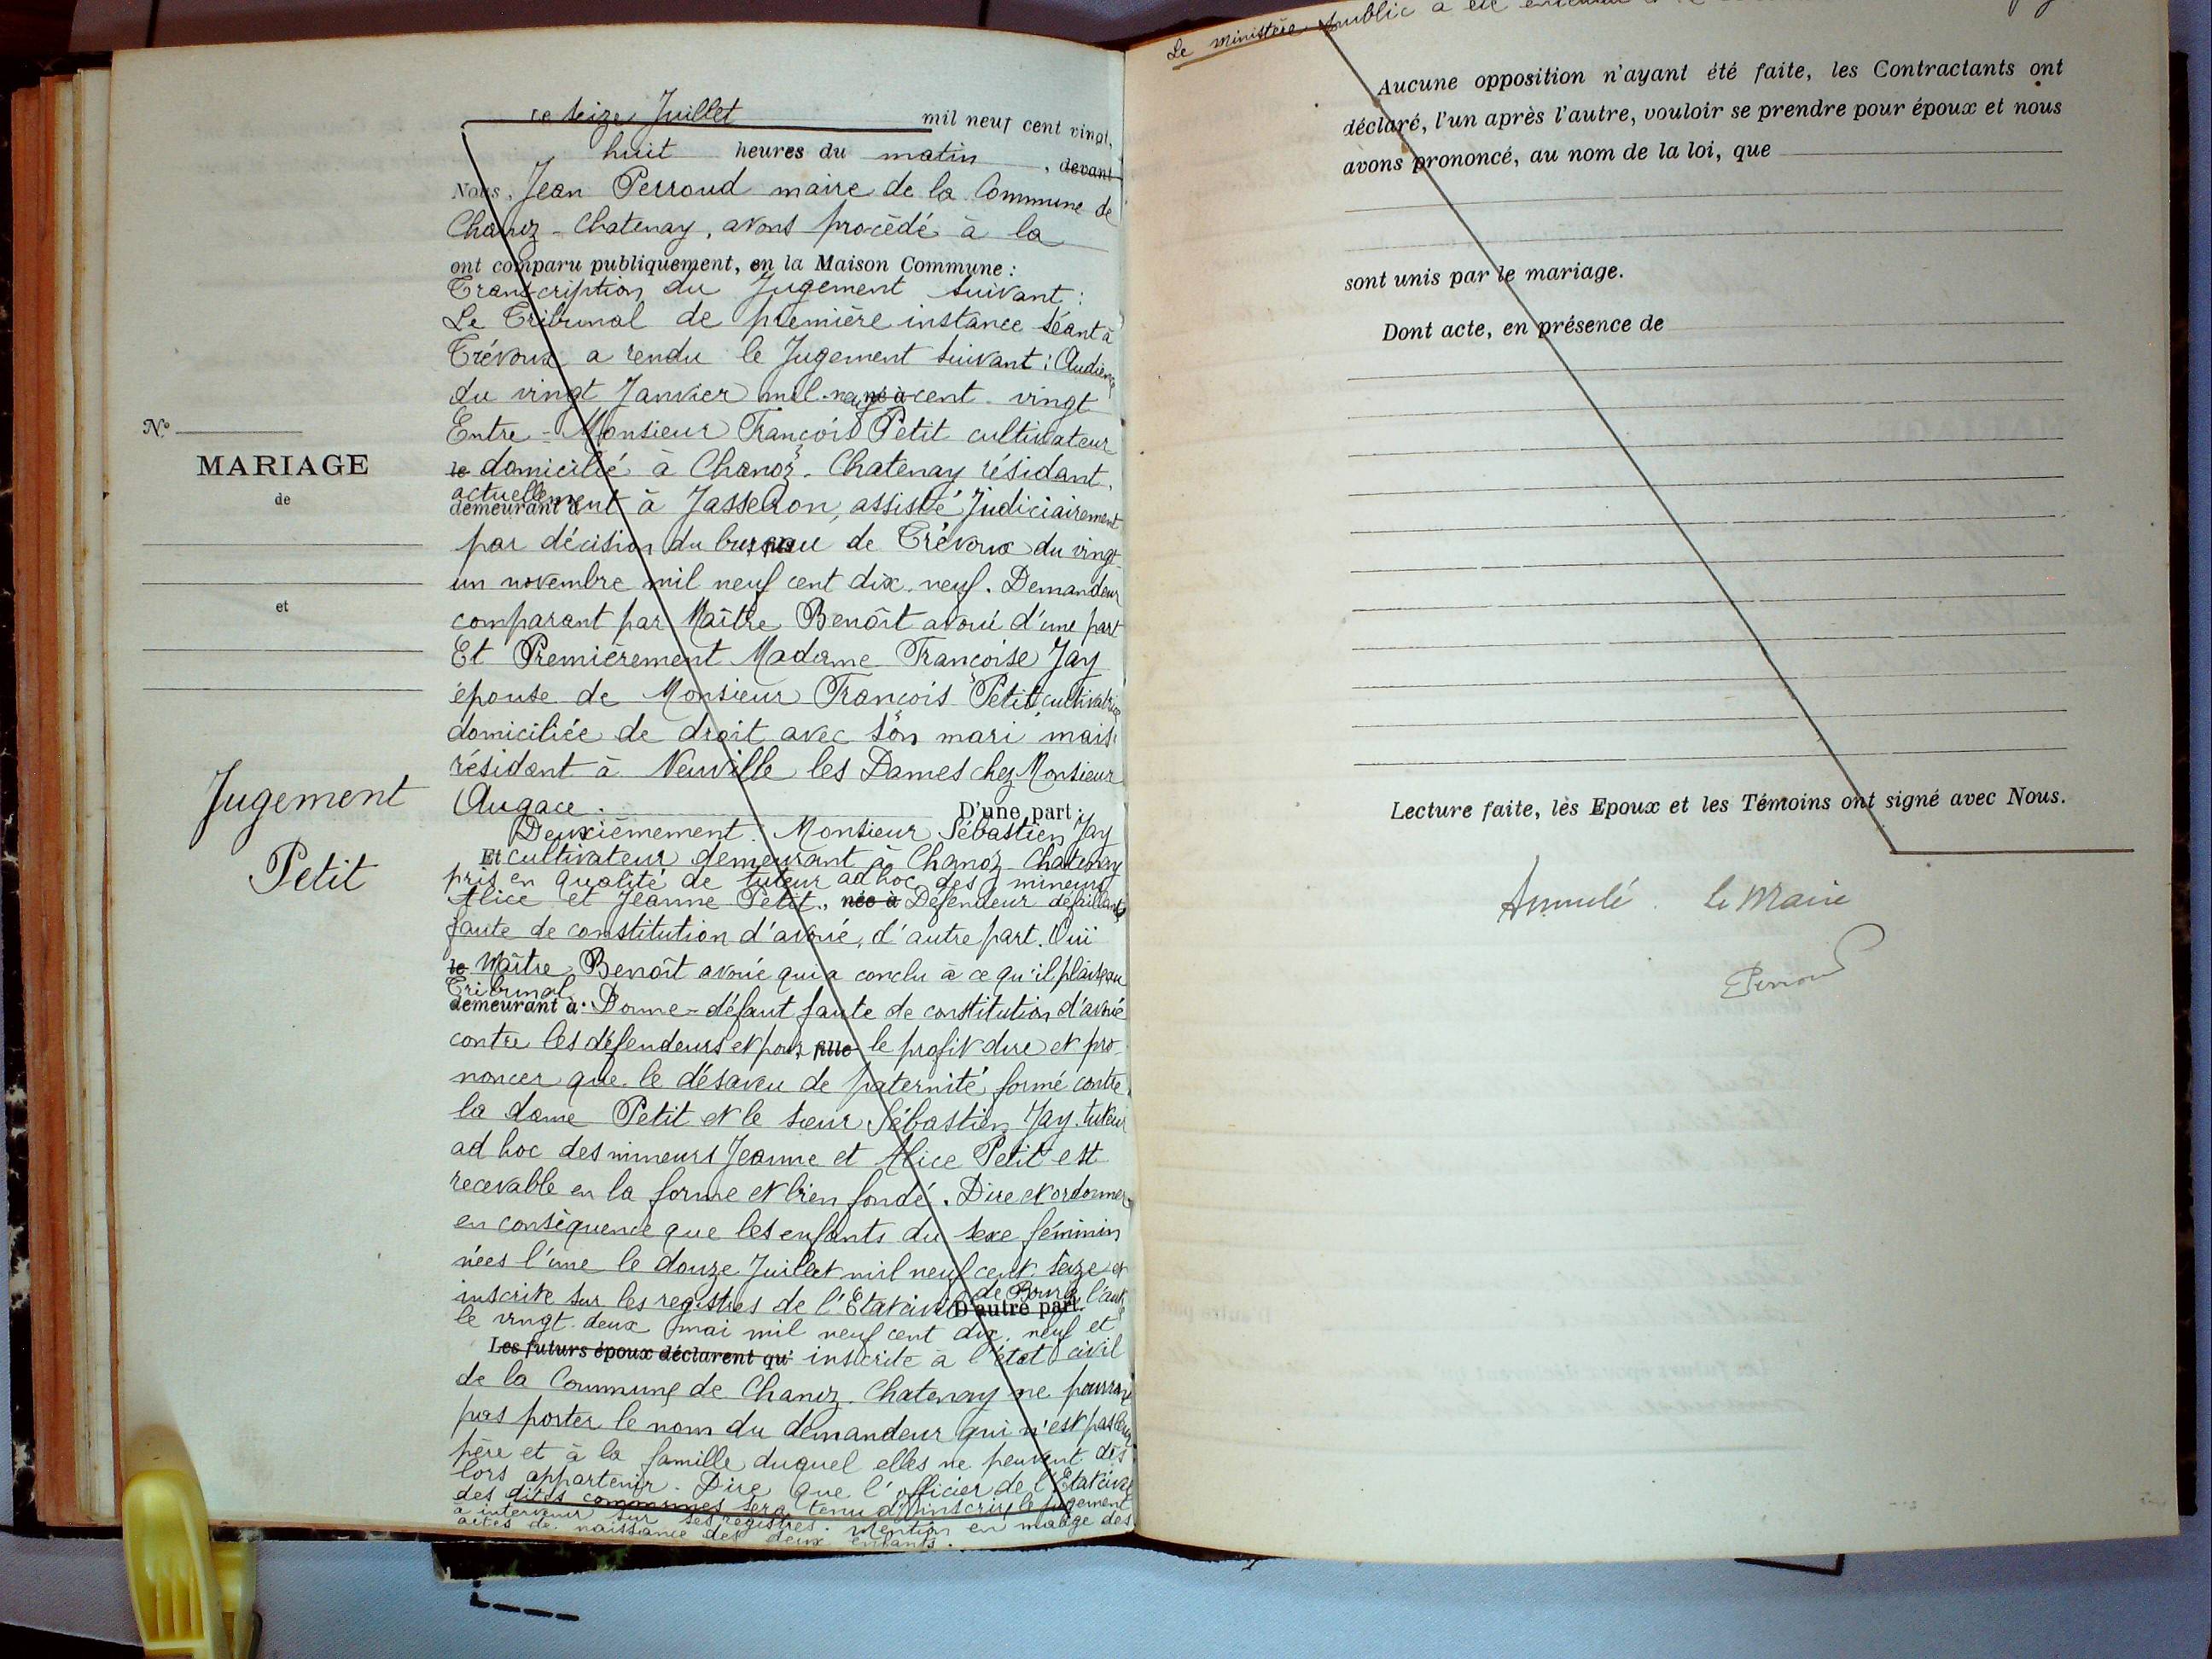 Le seize Juillet mil neuf cent vingt,
huit heures du matin, devant
Nous, Jean Perroud maire de la Commune de
Chanoz-Chatenay, avons procédé à la
ont comparu publiquement, en la Maison Commune :
Transcription du Jugement suivant :
Le Tribunal de première instance séant à
Trévoux a rendu le Jugement suivant : Audience
du vingt Janvier mil neuf né à cent vingt
Entre Monsieur François Petit cultivateur
le domicilié à Chanoz-Chatenay résidant,
actuellement à Jasseron, assisté Judiciairement
demeurant à
par décision du bureau de Trévoux du vingt
un novembre mil neuf cent dix-neuf. Demandeur
comparant par Maître Benoît avoué d'une part
Et Premièrement Madame Françoise Jay
épouse de Monsieur François Petit cultivatrice
domiciliée de droit avec son mari, mais
résidant à Neuville les Dames chez Monsieur
N° MARIAGE
de
et
Jugement
Petit
Augace. D'une part ;
Deuxièmement. Monsieur Sébastien Jay
Et cultivateur demeurant à Chanoz-Chatenay
pris en qualité de tuteur ad hoc des mineurs
Alice et Jeanne Petit, née à Défendeur défaillants
faute de constitution d'avoué, d'autre part. Ouï
le Maître Benoît avoué qui a conclu à ce qu'il plaise au
Tribunal
demeurant à : Donne-défaut faute de constitution d'avoué
contre les défendeurs et pour fille le profit dire et pro-
noncer que le désaveu de paternité formé contre
la dame Petit et le sieur Sébastien Jay tuteur
ad hoc des mineurs Jeanne et Alice Petit est
recevable en la forme et bien fondé. Dire et ordonner
en conséquence que les enfants du sexe féminin
nées l'une le douze Juillet mil neuf cent seize et
inscrite sur les registres de l'Etat civil de Bourg, l'autre
D'autre part.
le vingt-deux mai mil neuf cent dix-neuf et
Les futurs époux déclarent qu' inscrite à l'état civil
de la Commune de Chanoz-Chatenay ne pourront
pas porter le nom du demandeur qui n'est pas leur
père et à la famille duquel elles ne peuvent dès
lors appartenir. Dire que l'officier de l'Etat civil
des dites communes sera tenu d'inscrire le jugement
à intervenir sur ses registres. Mention en marge des
actes de naissance des deux enfants.
Le ministère public a été
Aucune opposition n'ayant été faite, les Contractants ont
déclaré, l'un après l'autre, vouloir se prendre pour époux et nous
avons prononcé, au nom de la loi, que
sont unis par le mariage.
Dont acte, en présence de
Lecture faite, les Epoux et les Témoins ont signé avec Nous.
Annulé. Le Maire
Perroud